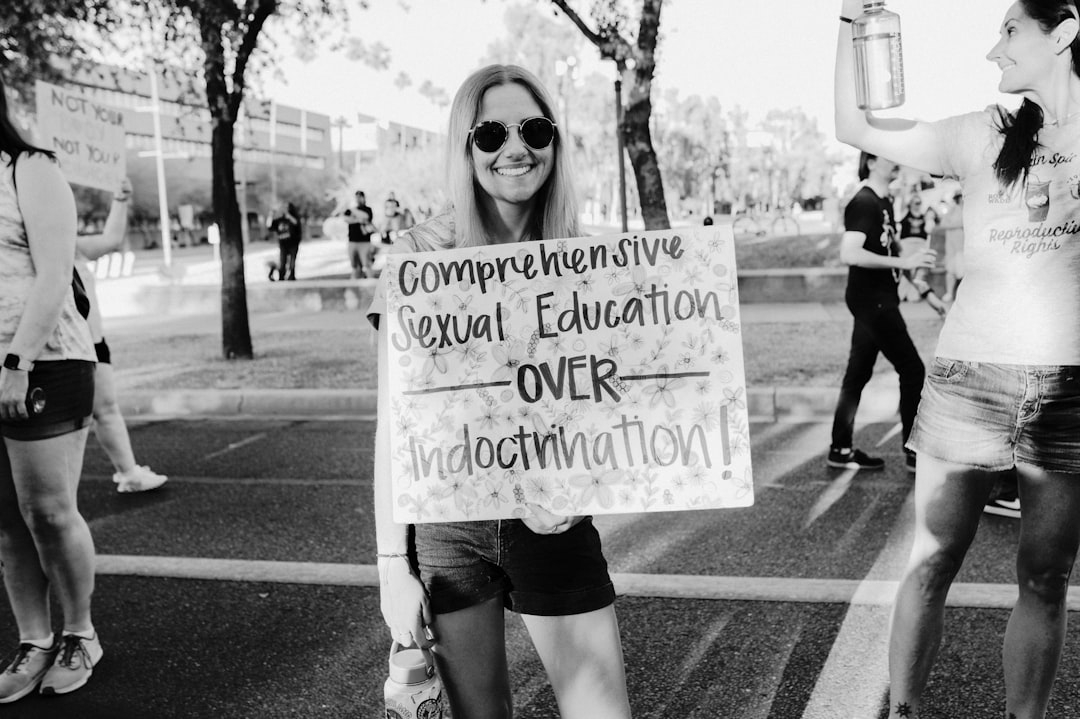 NOT YOUR
NOT YOUR
Comprehensive
Sexual Education
OVER
Indoctrination!
Reproductive
Rights